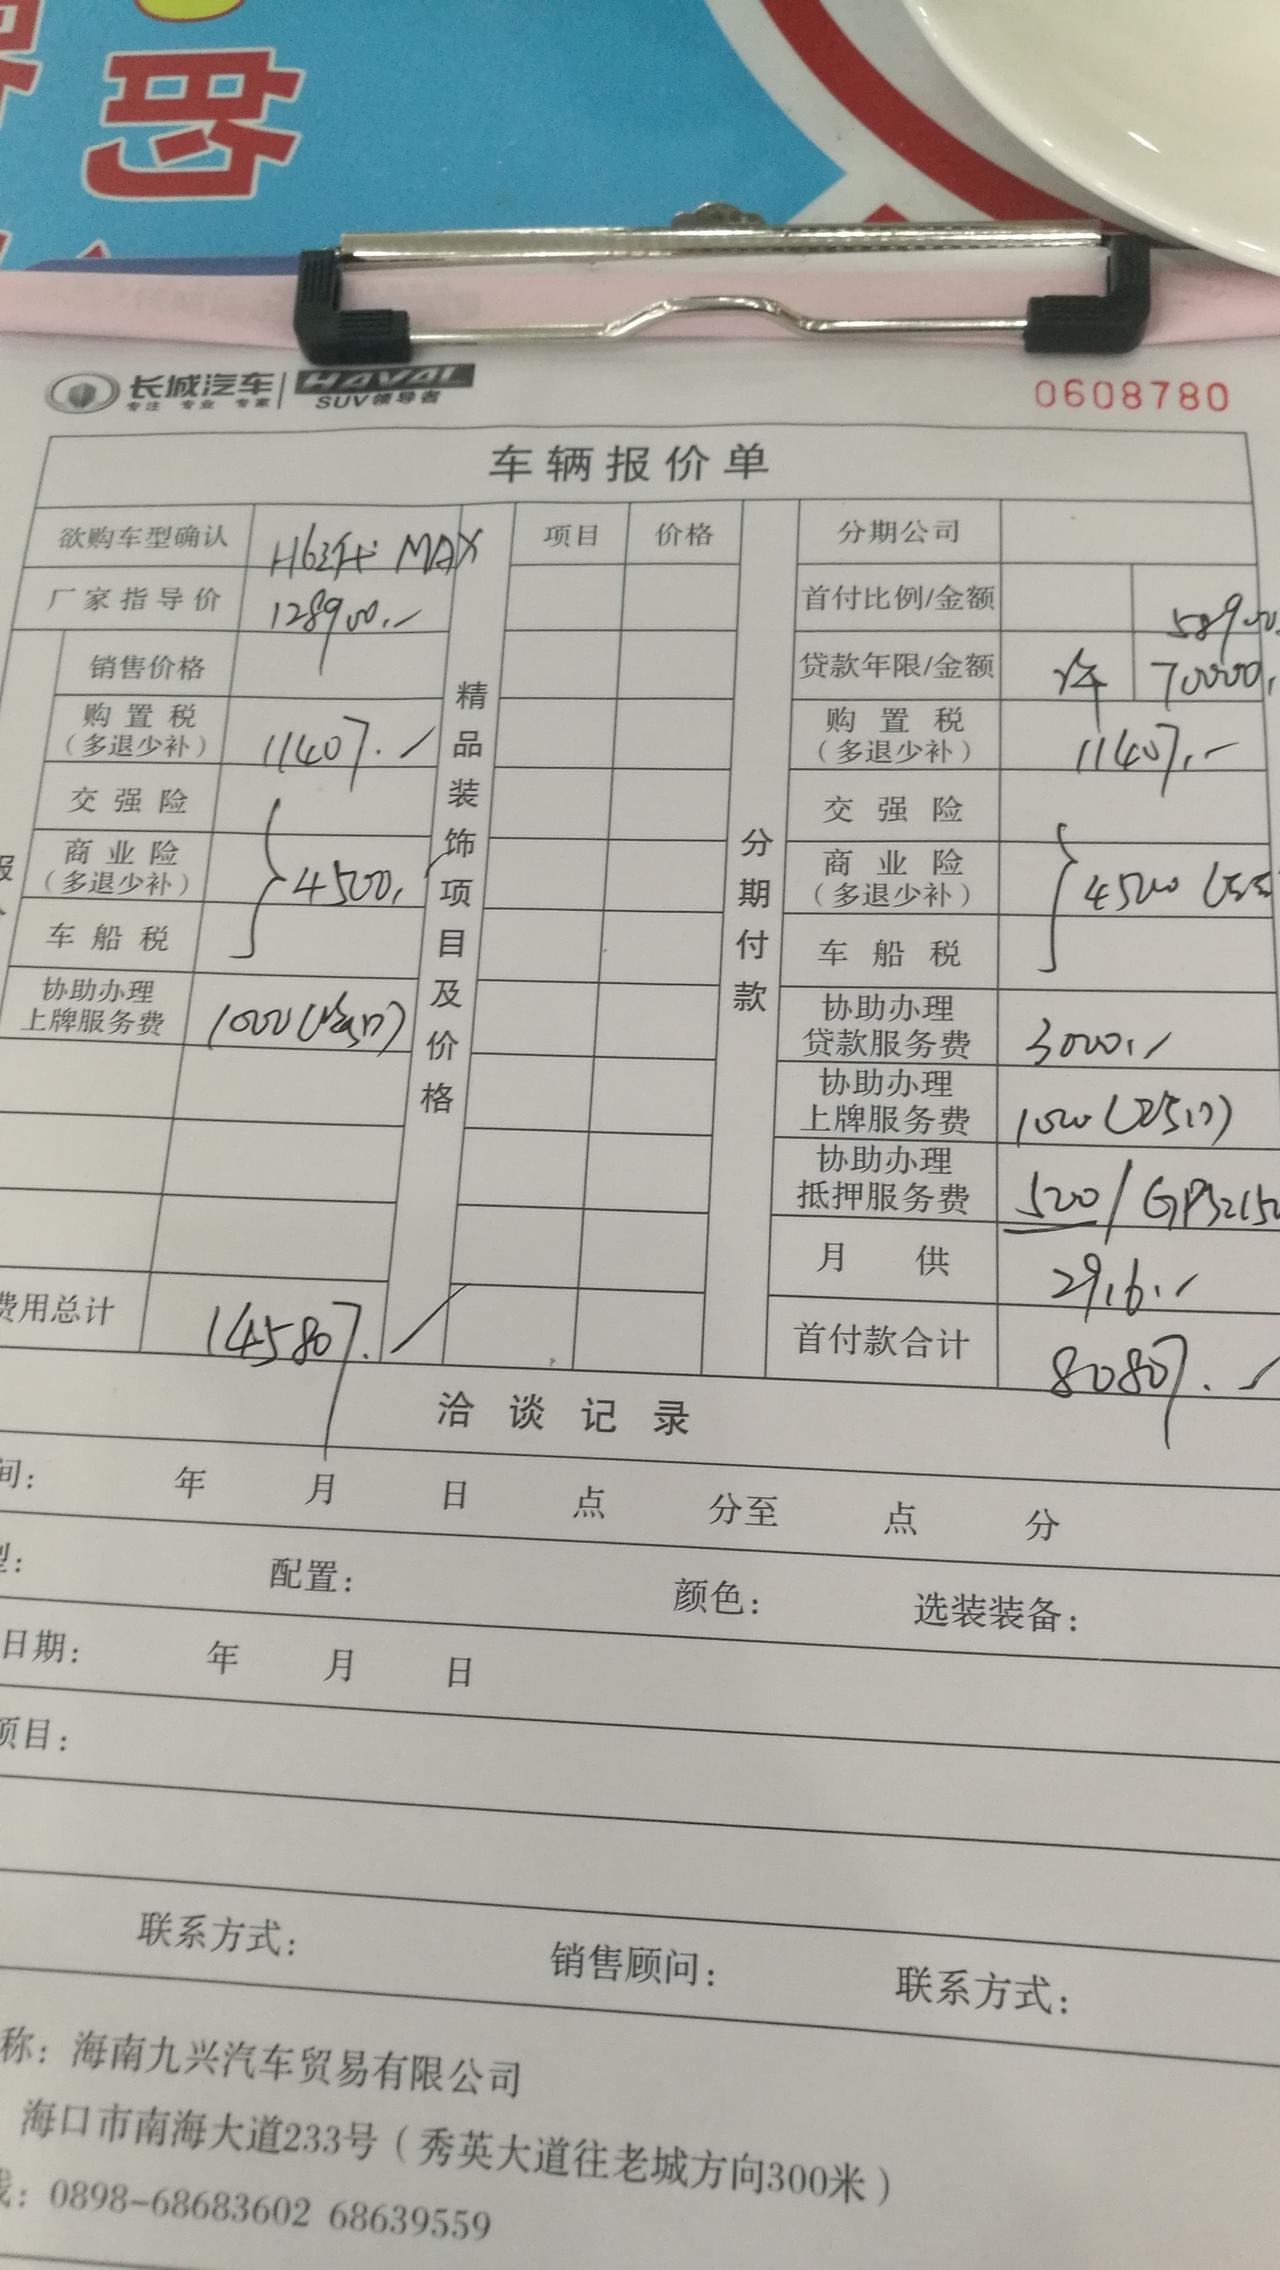 长城汽车 HAVAL
专注 专业 专家 SUV领导者
0608780
车辆报价单
欲购车型确认 H6三代 MAX 项目 价格 分期公司
厂家指导价 128900.- 首付比例/金额 58900.
销售价格 贷款年限/金额 70000.
精品装饰项目及价格
分期付款
购置税 11407.- 购置税 11407.-
(多退少补) (多退少补)
交强险 交强险
商业险 4500. 商业险 4500
(多退少补) (多退少补)
车船税 车船税
协助办理 1000 协助办理 3000.-
上牌服务费 贷款服务费
协助办理 1000
上牌服务费
协助办理 500/GPS2150
抵押服务费
月供 2916.-
费用总计 145807.- 首付款合计 80807.-
洽谈记录
间: 年 月 日 点 分至 点 分
型: 配置: 颜色: 选装装备:
日期: 年 月 日
项目:
联系方式: 销售顾问: 联系方式:
称: 海南九兴汽车贸易有限公司
海口市南海大道233号(秀英大道往老城方向300米)
线: 0898-68683602 68639559